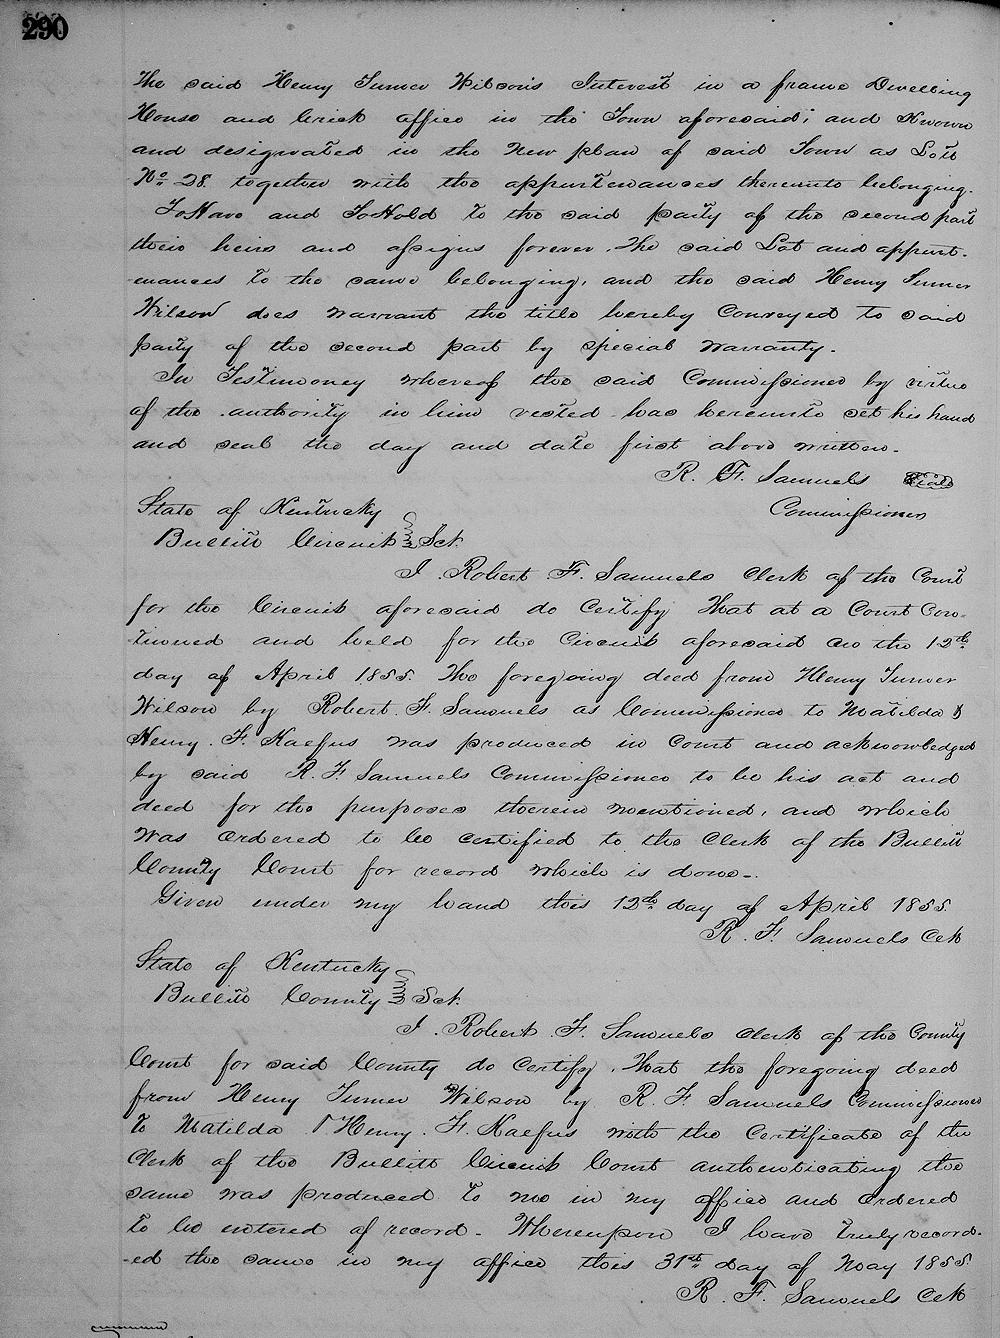 290
The said Henry Turner Wilson's Interest in a frame Dwelling
House and brick office in the Town aforesaid; and Known
and designated in the New plan of said Town as Lott
No 28. together with the appurtenances thereunto belonging.
To Have and To Hold to the said party of the second part
their heirs and assigns forever. The said Lot and appurt-
-enances to the same belonging, and the said Henry Turner
Wilson does warrant the title hereby Conveyed to said
party of the second part by special Warranty.
In Testimoney whereof the said Commissioner by virtue
of the authority in him vested has hereunto set his hand
and seal the day and date first above written.
R. F. Samuels Seal
Commissioner
State of Kentucky
Bullitt Circuit Sct.
I Robert F. Samuels Clerk of the Court
for the Circuit aforesaid do Certify That at a Court Con-
-tinued and held for the Circuit aforesaid on the 12th
day of April 1855. The foregoing deed from Henry Turner
Wilson by Robert. F. Samuels as Commissioner to Matilda &
Henry. F. Kaefus was produced in Court and acknowledged
by said R. F. Samuels Commissioner to be his act and
deed for the purposes therein mentioned, and which
was ordered to be certified to the Clerk of the Bullitt
County Court for record which is done-.
Given under my hand this 12th day of April 1855.
R. F. Samuels Clk
State of Kentucky
Bullitt County Sct.
I. Robert. F. Samuels Clerk of the County
Court for said County do Certify, That the foregoing deed
from Henry Turner Wilson by R. F. Samuels Commissioner
To Matilda & Henry. F. Kaefus with the Certificate of the
Clerk of the Bullitt Circuit Court authenticating the
same was produced to me in my office and ordered
to be entered of record. Whereupon I have truly record-
-ed the same in my office this 31st day of May 1855.
R. F. Samuels Clk